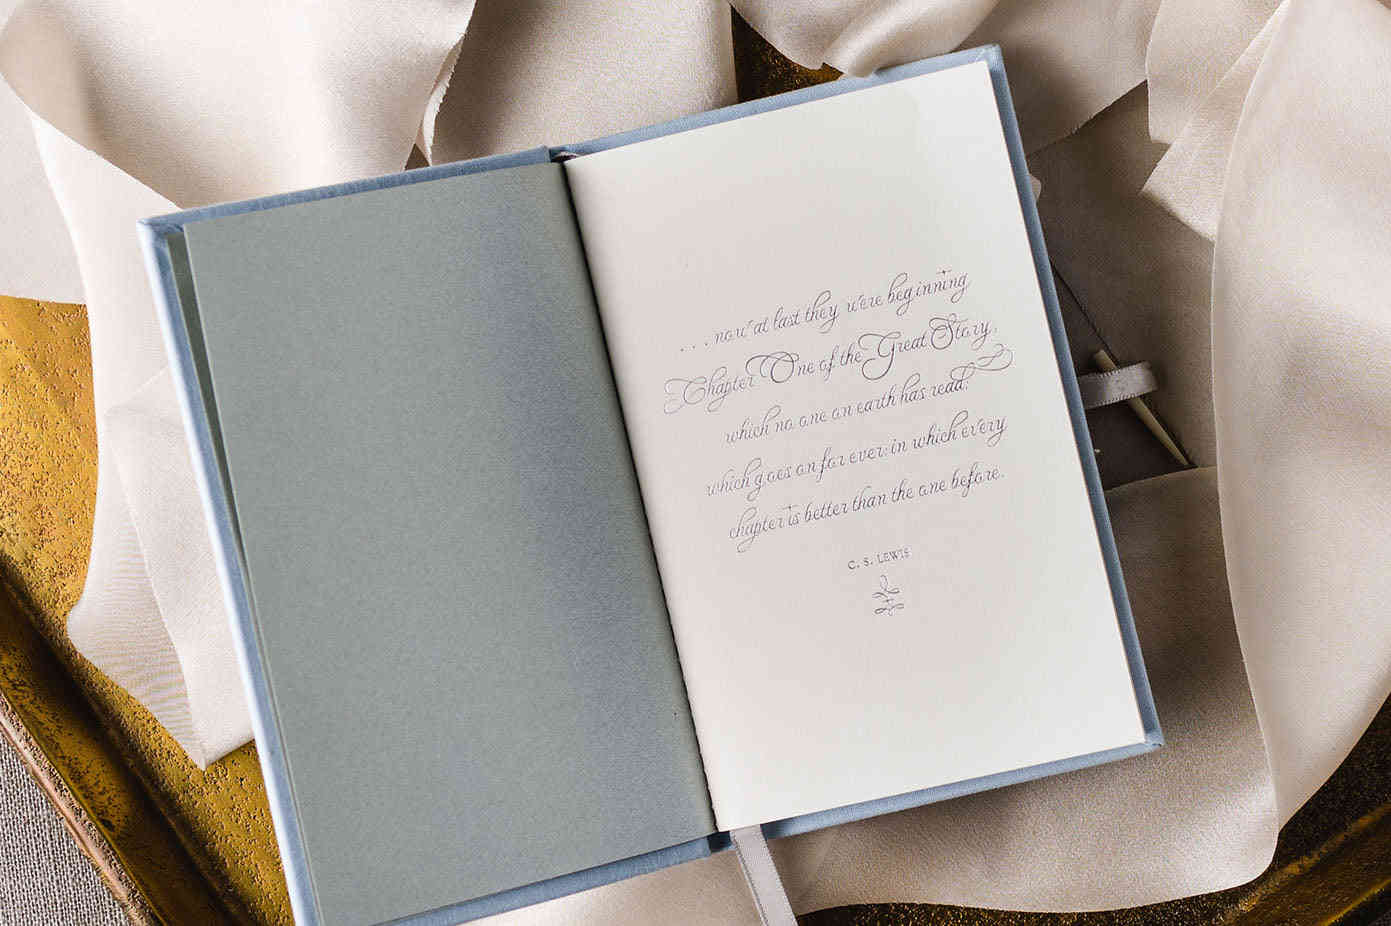 ...now at last they were beginning
Chapter One of the Great Story,
which no one on earth has read:
which goes on for ever: in which every
chapter is better than the one before.
C. S. LEWIS